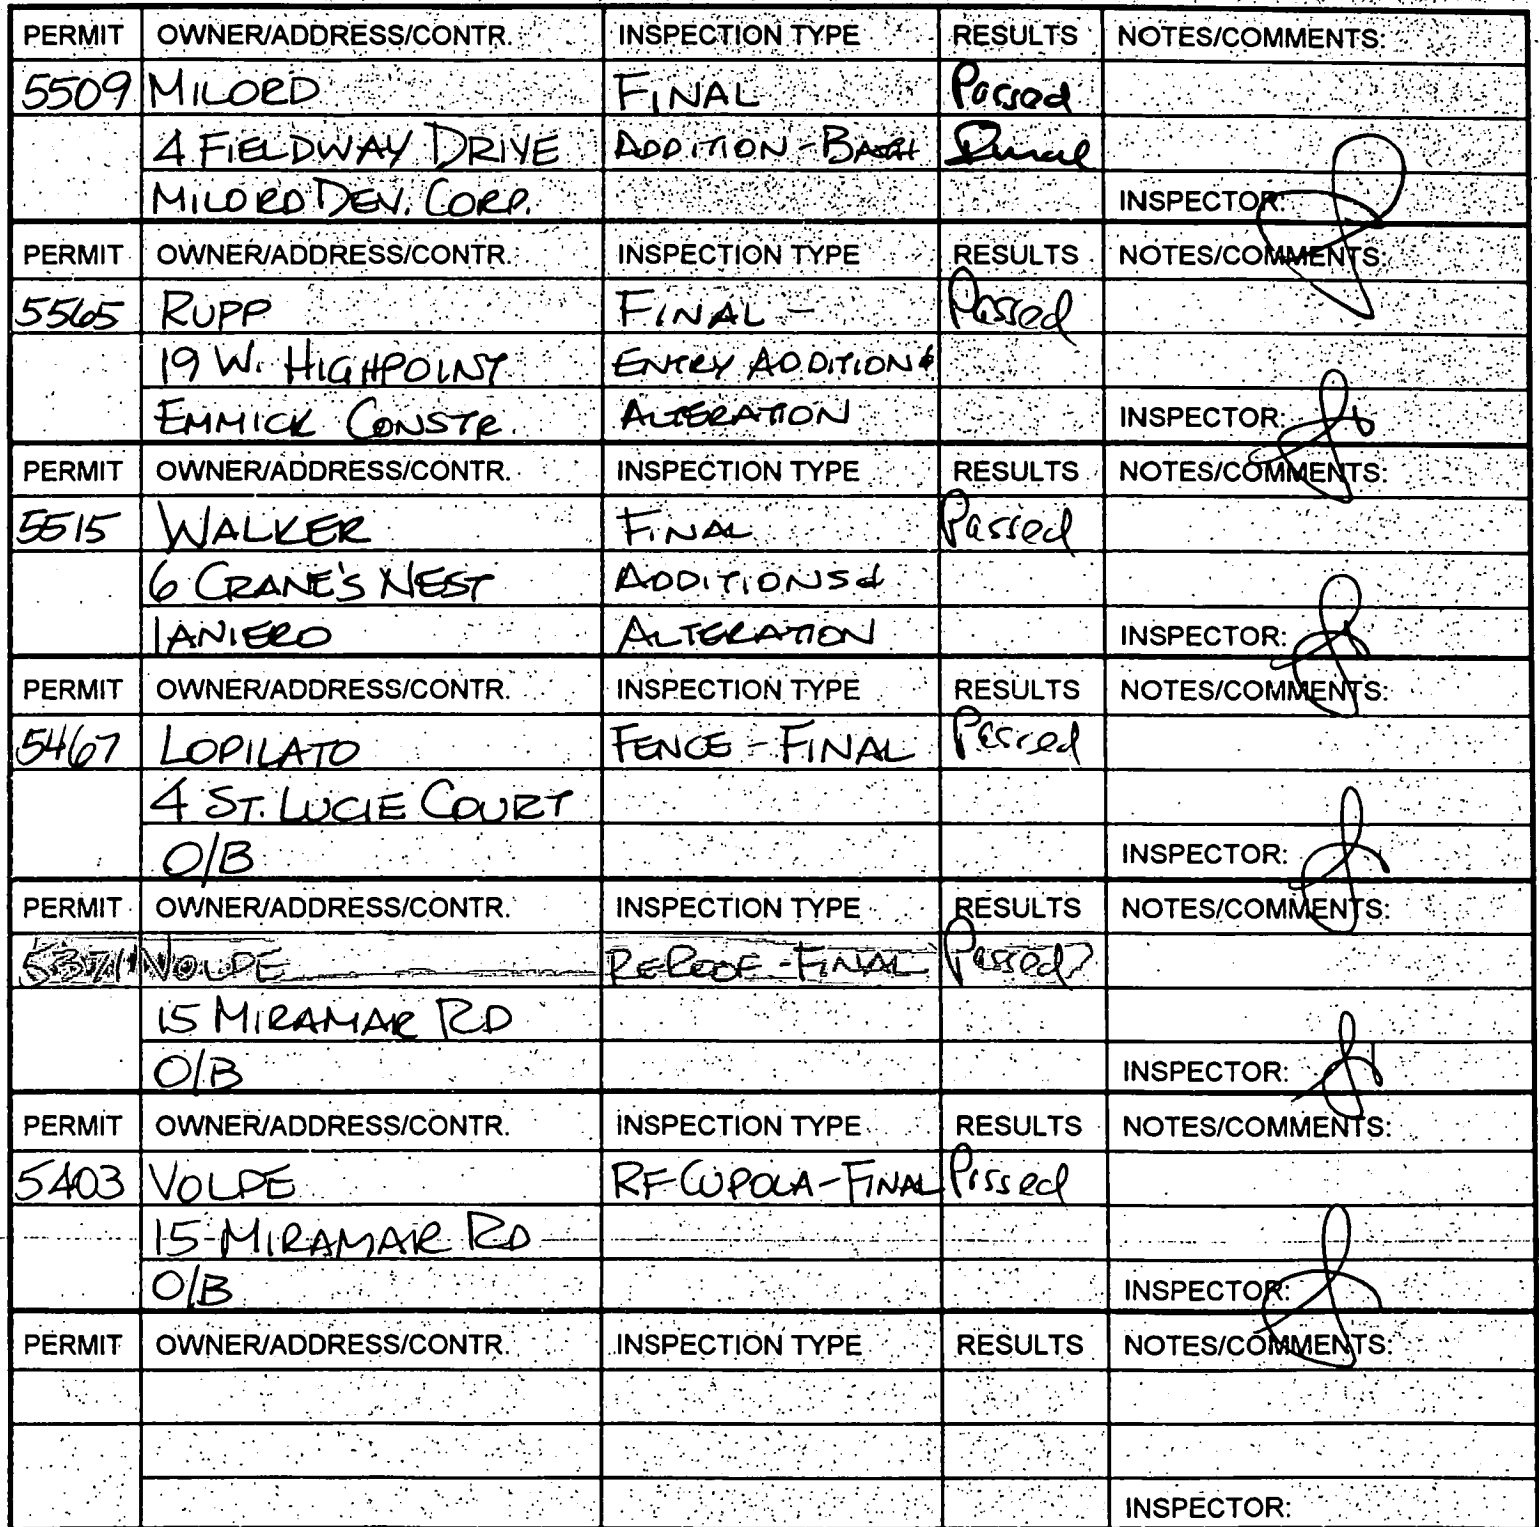 PERMIT OWNER/ADDRESS/CONTR. INSPECTION TYPE RESULTS NOTES/COMMENTS:
5509 MILORD FINAL Passed
4 FIELDWAY DRIVE ADDITION -
MILORD DEV. CORP. INSPECTOR:
PERMIT OWNER/ADDRESS/CONTR. INSPECTION TYPE RESULTS NOTES/COMMENTS:
5565 RUPP FINAL - Passed
19 W. HIGHPOINT ENTRY ADDITION &
EMMICK CONSTR. ALTERATION INSPECTOR:
PERMIT OWNER/ADDRESS/CONTR. INSPECTION TYPE RESULTS NOTES/COMMENTS:
5515 WALKER FINAL Passed
6 CRANE'S NEST ADDITIONS &
IANIERO ALTERATION INSPECTOR:
PERMIT OWNER/ADDRESS/CONTR. INSPECTION TYPE RESULTS NOTES/COMMENTS:
5467 LOPILATO FENCE - FINAL Passed
4 ST. LUCIE COURT
O/B INSPECTOR:
PERMIT OWNER/ADDRESS/CONTR. INSPECTION TYPE RESULTS NOTES/COMMENTS:
5371 VOLPE REROOF - FINAL Passed?
15 MIRAMAR RD
O/B INSPECTOR:
PERMIT OWNER/ADDRESS/CONTR. INSPECTION TYPE RESULTS NOTES/COMMENTS:
5403 VOLPE RF CUPOLA - FINAL Passed
15 MIRAMAR RD
O/B INSPECTOR:
PERMIT OWNER/ADDRESS/CONTR. INSPECTION TYPE RESULTS NOTES/COMMENTS:
INSPECTOR: